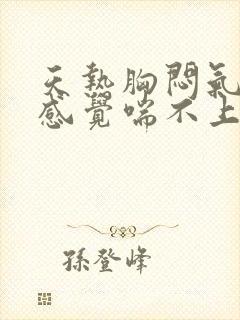 天熱胸悶氣
感覺喘不上
孫登峰